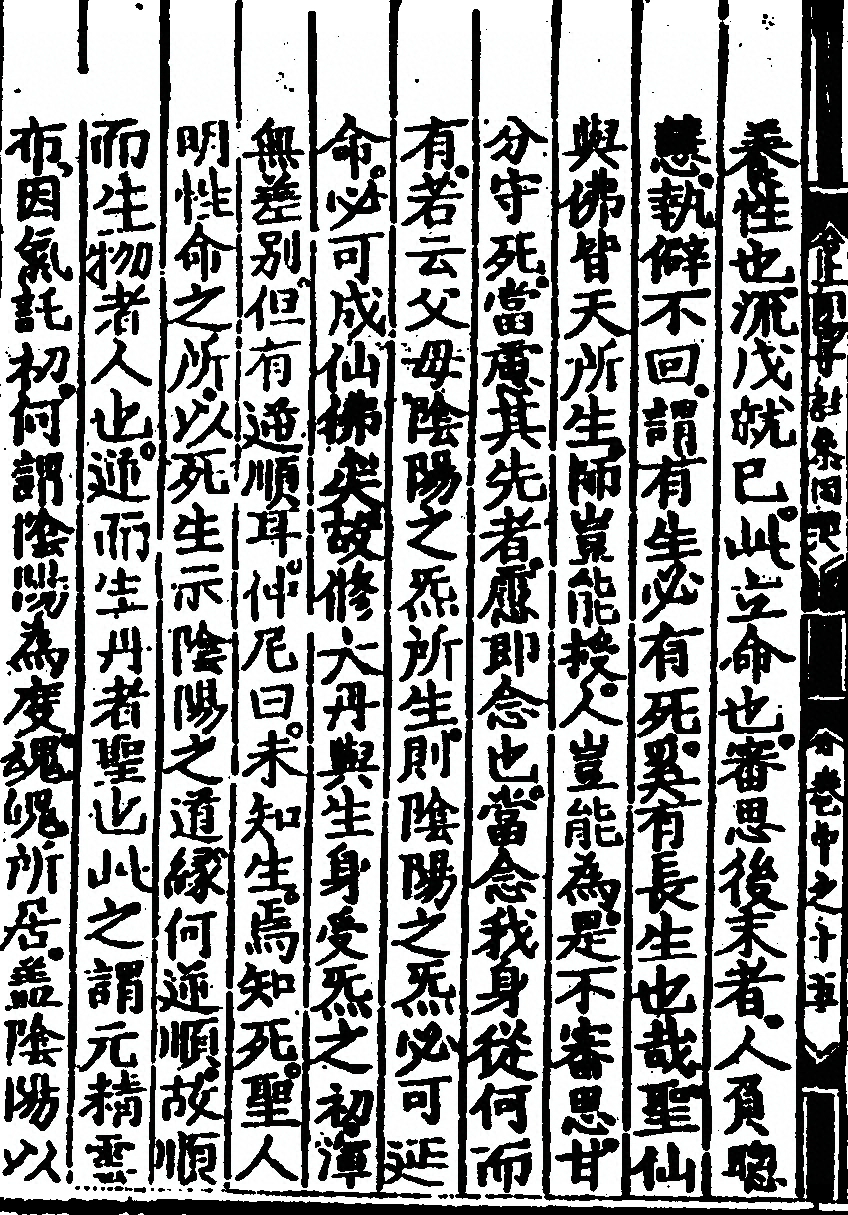 養性也流戊就已此立命也審思後末者人負聰
慧執僻不回謂有生必有死奚有長生也哉聖仙
與佛皆天所生師豈能授人豈能為是不審思甘
分守死當慮其先者應即念也當念我身從何而
有若云父母陰陽之炁所生則陰陽之炁必可延
命必可成仙佛矣故修大丹與生身受炁之初渾
無差别但有逆順耳仲尼曰未知生焉知死聖人
明性命之所以死生示陰陽之道緣何逆順故順
而生物者人也逆而生丹者聖也此之謂元精雲
布因氣託初何謂陰陽為度魂魄所居盖陰陽以
卷中之十五